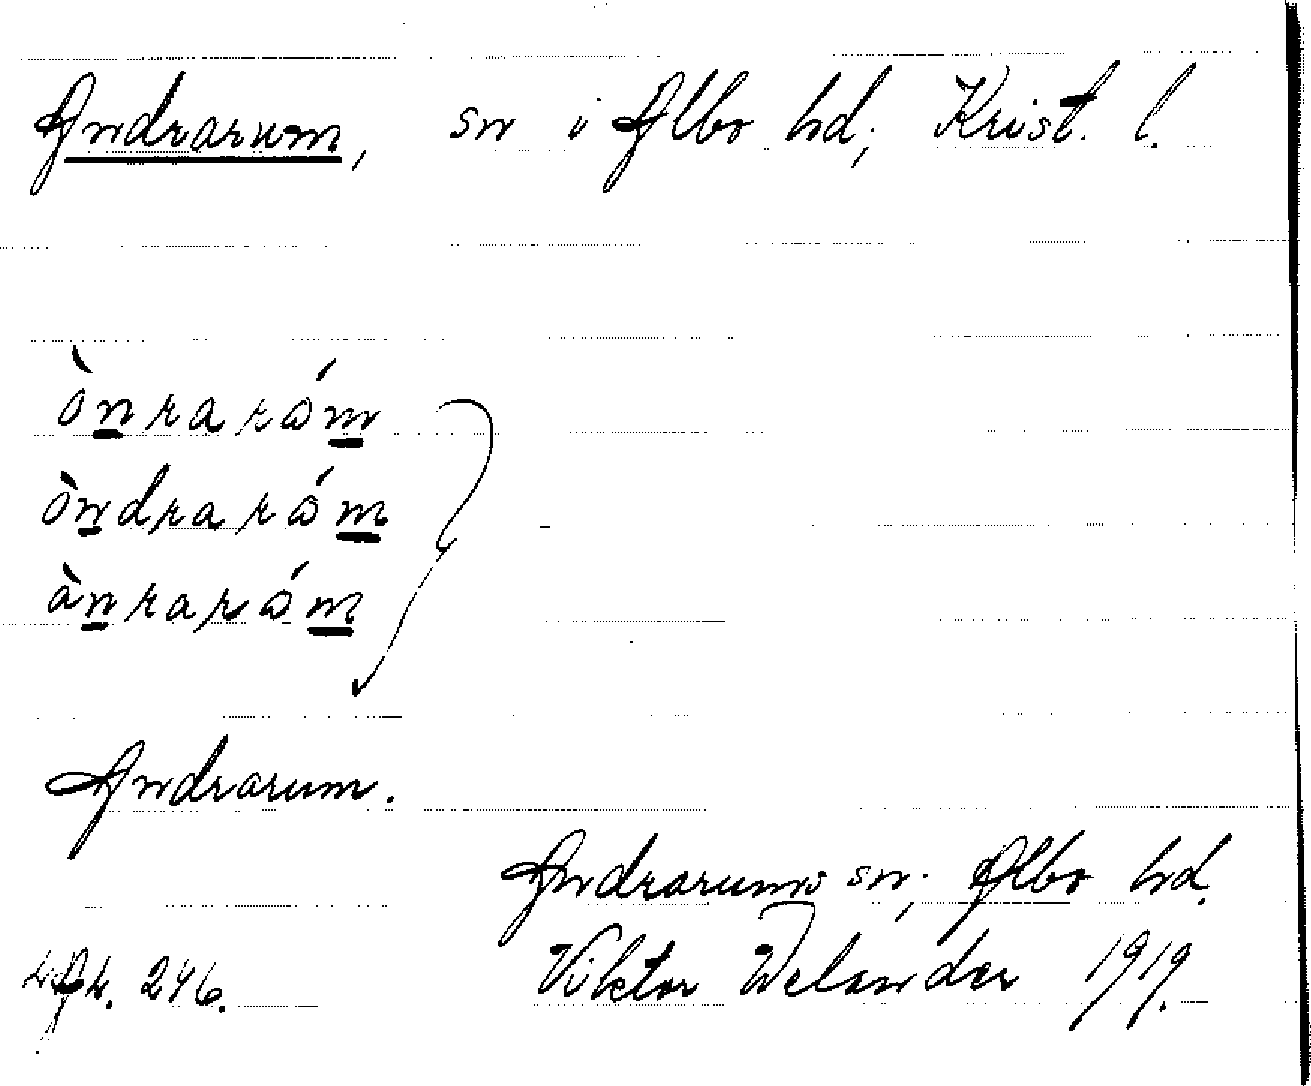 Andrarum, sn i Albo hd, Krist. l.
ònraróm
òndraróm
ànraróm
Andrarum.
Andrarums sn, Albo hd.
Viktor Welander 1919.
246.